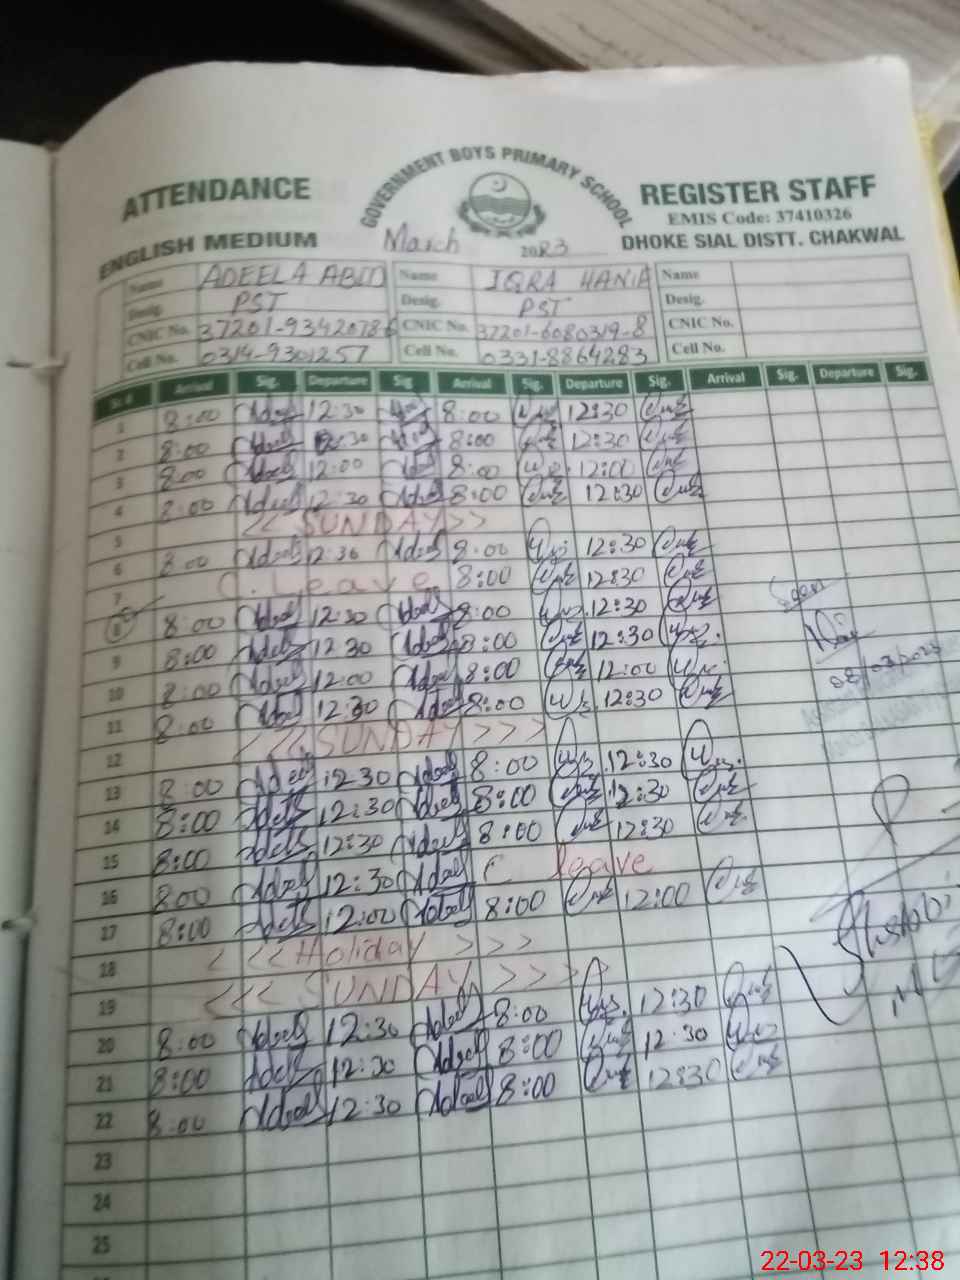 GOVERNMENT BOYS PRIMARY SCHOOL
ATTENDANCE REGISTER STAFF
EMIS Code: 37410326
ENGLISH MEDIUM March 2023 DHOKE SIAL DISTT. CHAKWAL
Name ADEELA ABID Name IQRA HANIA Name
Desig. PST Desig. PST Desig.
CNIC No. CNIC No. 37201-6080319-8 CNIC No.
Cell No. 0314-9301257 Cell No. 0331-8864283 Cell No.
Sr.# Arrival Sig. Departure Sig Arrival Sig. Departure Sig. Arrival Sig. Departure Sig.
1 8:00 Adeel 12:30 8:00 12:30
2 8:00 Adeel 12:30 8:00 12:30
3 8:00 Adeel 12:00 Adeel 8:00 12:00
4 8:00 Adeel 12:30 Adeel 8:00 12:30
5 << SUNDAY >>
6 8:00 Adeel 12:30 Adeel 8:00 12:30
7 C. Leave 8:00 12:30
8 8:00 Adeel 12:30 Adeel 8:00 12:30 Seen
9 8:00 Adeel 12:30 Adeel 8:00 12:30
10 8:00 Adeel 12:00 Adeel 8:00 12:00
11 8:00 Adeel 12:30 Adeel 8:00 12:30
12 <<< SUNDAY >>>
13 8:00 Adeel 12:30 Adeel 8:00 12:30
14 8:00 Adeel 12:30 Adeel 8:00 12:30
15 8:00 Adeel 12:30 Adeel 8:00 12:30
16 8:00 Adeel 12:30 Adeel C leave
17 8:00 Adeel 12:00 Adeel 8:00 12:00
18 <<< Holiday >>>
19 <<< SUNDAY >>>>
20 8:00 Adeel 12:30 Adeel 8:00 12:30
21 8:00 Adeel 12:30 Adeel 8:00 12:30
22 8:00 Adeel 12:30 Adeel 8:00 12:30
23
24
25
22-03-23 12:38